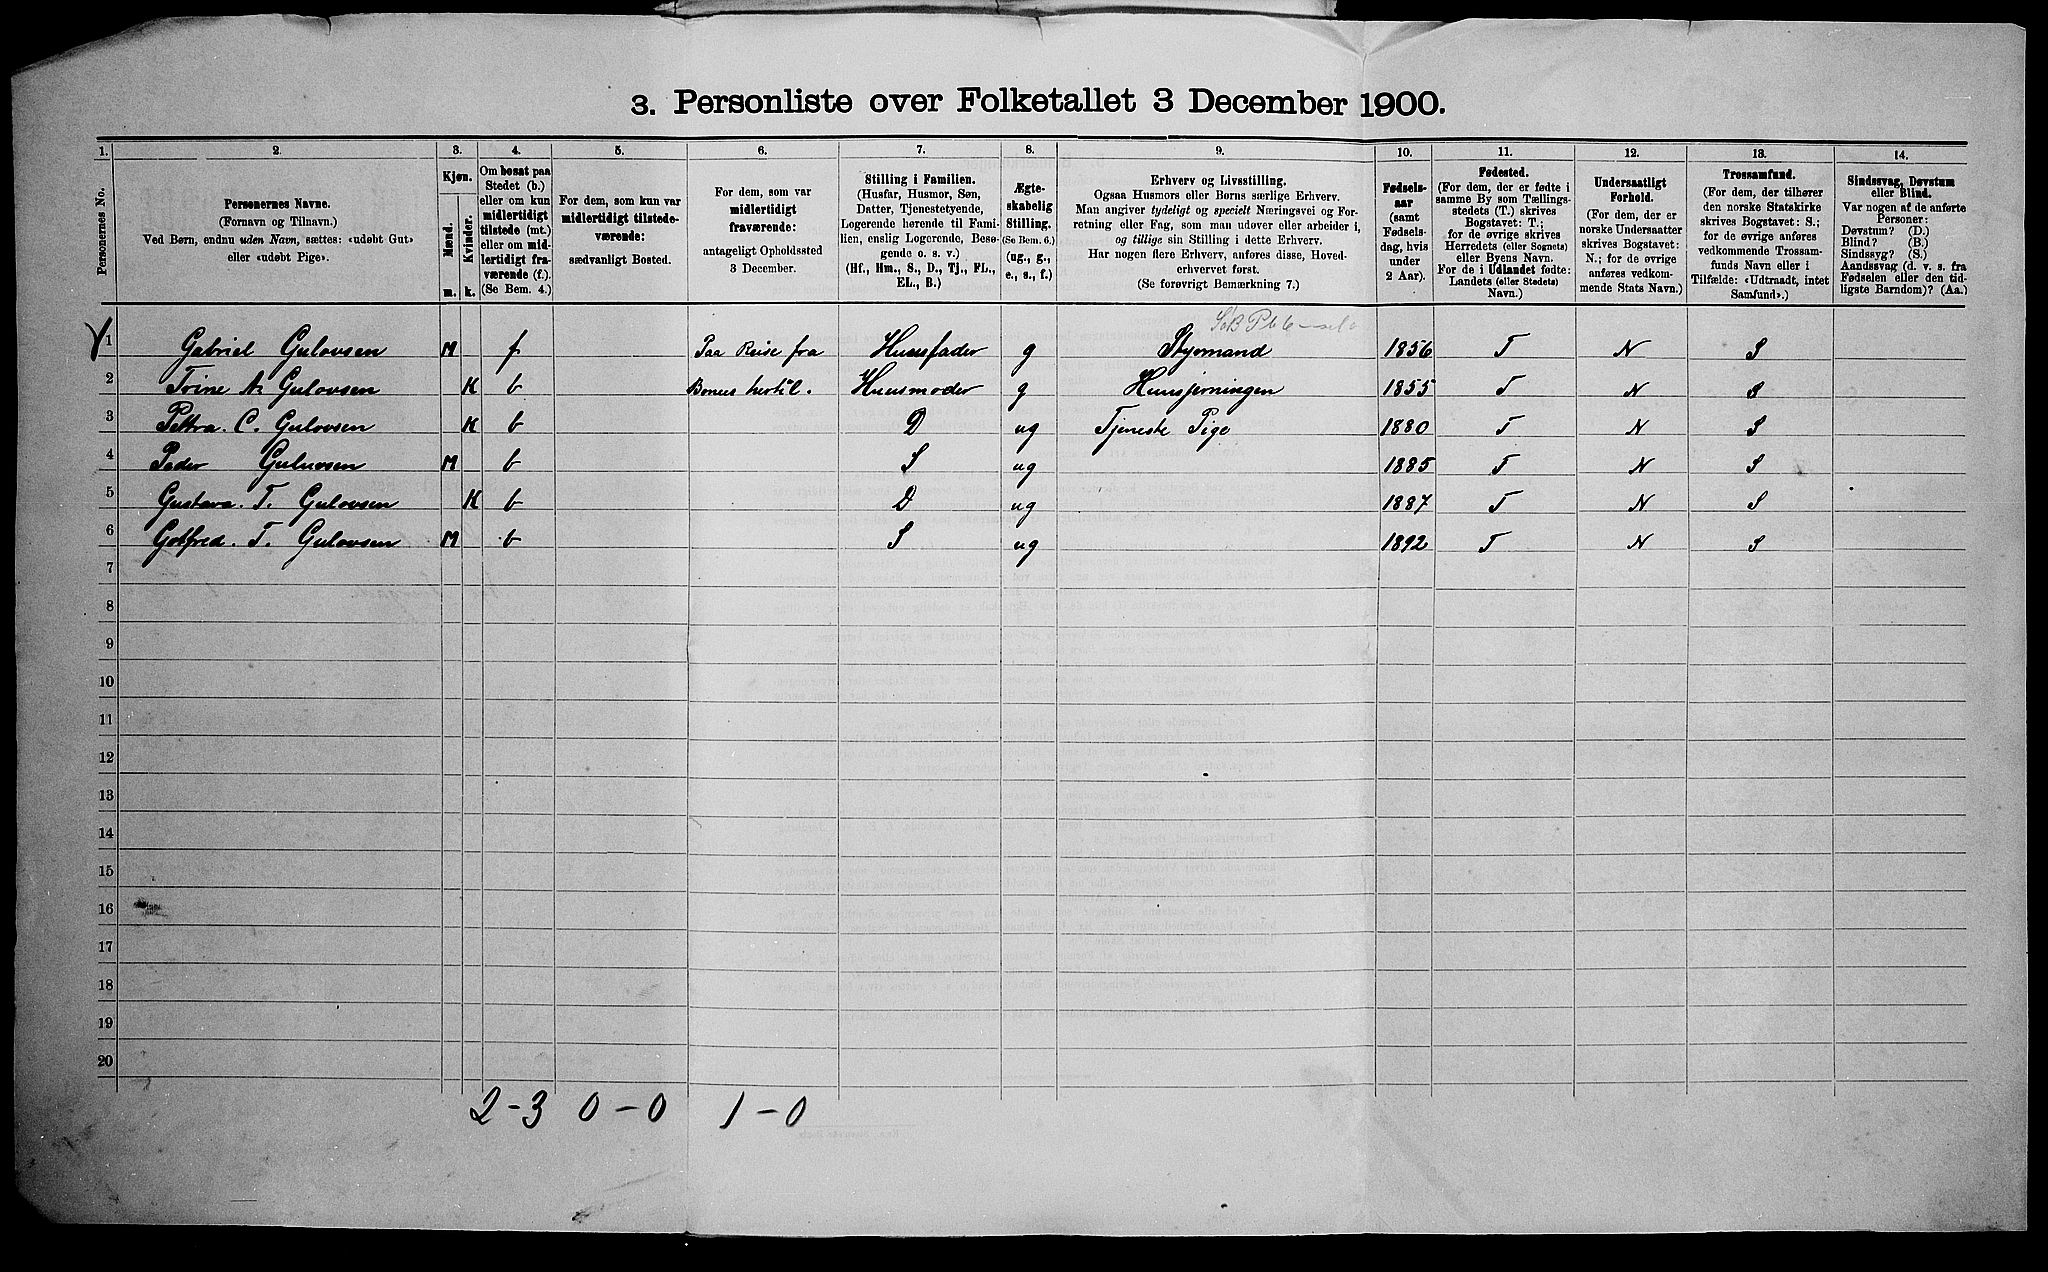 3. Personliste over Folketallet 3 December 1900.
1. 2. 3. 4. 5. 6. 7. 8. 9. 10. 11. 12. 13. 14.
Personernes No.
Personernes Navne.
(Fornavn og Tilnavn.)
Ved Børn, endnu uden Navn, sættes: «udøbt Gut»
eller «udøbt Pige».
Kjøn.
Mænd. Kvinder.
m. k.
Om bosat paa
Stedet (b.)
eller om kun
midlertidigt
tilstede (mt.)
eller om mid-
lertidigt fra-
værende (f.).
(Se Bem. 4.)
For dem, som kun var
midlertidigt tilstede-
værende:
sædvanligt Bosted.
For dem, som var
midlertidigt
fraværende:
antageligt Opholdssted
3 December.
Stilling i Familien.
(Husfar, Husmor, Søn,
Datter, Tjenestetyende,
Logerende hørende til Fami-
lien, enslig Logerende, Besø-
gende o. s. v.)
(Hf., Hm., S., D., Tj., FL.,
EL., B.)
Ægte-
skabelig
Stilling.
(Se Bem. 6.)
(ug., g.,
e., s., f.)
Erhverv og Livsstilling.
Ogsaa Husmors eller Børns særlige Erhverv.
Man angiver tydeligt og specielt Næringsvei og For-
retning eller Fag, som man udøver eller arbeider i,
og tillige sin Stilling i dette Erhverv.
Har nogen flere Erhverv, anføres disse, Hoved-
erhvervet først.
(Se forøvrigt Bemærkning 7.)
Fødsels-
aar
(samt
Fødsels-
dag, hvis
under
2 Aar).
Fødested.
(For dem, der er fødte i
samme By som Tællings-
stedets (T.) skrives
Bogstavet: T.;
for de øvrige skrives
Herredets (eller Sognets)
eller Byens Navn.
For de i Udlandet fødte:
Landets (eller Stedets)
Navn.)
Undersaatligt
Forhold.
(For dem, der er
norske Undersaatter
skrives Bogstavet:
N.; for de øvrige
anføres vedkom-
mende Stats Navn.)
Trossamfund.
(For dem, der tilhører
den norske Statskirke
skrives Bogstavet: S.;
for de øvrige anføres
vedkommende Trossam-
funds Navn eller i
Tilfælde: «Udtraadt, intet
Samfund».)
Sindssvag, Døvstum
eller Blind.
Var nogen af de anførte
Personer:
Døvstum? (D.)
Blind? (B.)
Sindssyg? (S.)
Aandssvag (d. v. s. fra
Fødselen eller den tid-
ligste Barndom)? (Aa.)
1 Gabriel Gulovsen M f Paa Reise fra Huusfader g Styrmand 1856 T N S
2 Trine A. Gulovsen K b hertil. Huusmoder g Huusjerningen 1855 T N S
3 Petra. C. Gulovsen K b D ug Tjeneste Pige 1880 T N S
4 Peder Gulovsen M b S ug 1885 T N S
5 Gustava. T. Gulovsen K b D ug 1887 T N S
6 Gotfred. T. Gulovsen M b S ug 1892 T N S
7
8
9
10
11
12
13
14
15
16
17
18
19
20
2-3 0-0 1-0